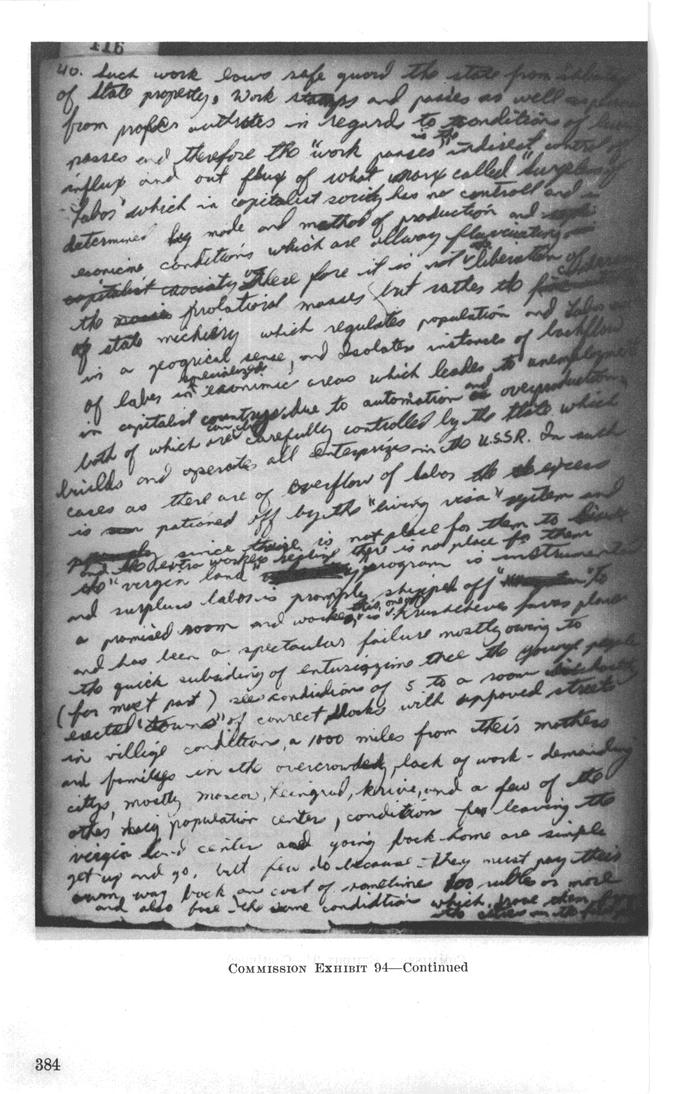 116
40. Such work laws safe guard the state from
of State property, Work stamps and passes as well as
from profes authrates in regard to conditions of
is the
passes and therefore the "work passes" indirect control of
influx and out flux of what marx called "Surplus of
Labor" which in capitalist society has no controll and is
determined by mode and method of production and
econimic conditions which are allway flucuating
capitalist caociaty There fore it is not liberation of
the prolational masses but rather the
of state michiery which regulates population and Labor
in a geogrical sense, and isolates instances of backflow
specialized
of labor in econimic areas which leads to unemployment
in capitalist countrys due to automation and overproduction,
both of which are carefully controlled by the State which
builds and operates all enterprizes in the U.S.S.R. In such
cases as there are of overflow of labor the excess
is pationed off by the "living visa" system and
since there is not place for them to
and the extra workers realize there is no place for them
the "virgin land program is instrumental
and surplus labor is promply shipped off to
a promised room and work, this, one of Kruscheves faves plans
and has been a spectacular failure mostly owing to
the quick subsiding of entusiazime thee the young people
(for most part) see conditions of 5 to a room
erected "towns" of conrect blocks with unpoved streets
in villige conditions, a 1000 miles from their mothers
and families in the overcrowded, lack of work-demanding
citys, mostly moscow, Leingrad, kiive, and a few of the
other big population center, condition for leaving the
virgin land center and going back home are simple
get up and go, but few do because they must pay their
own way back an cost of sometime 100 rubles or more
and also face the same condidtion which drove them
the cities in the
COMMISSION EXHIBIT 94—Continued
384